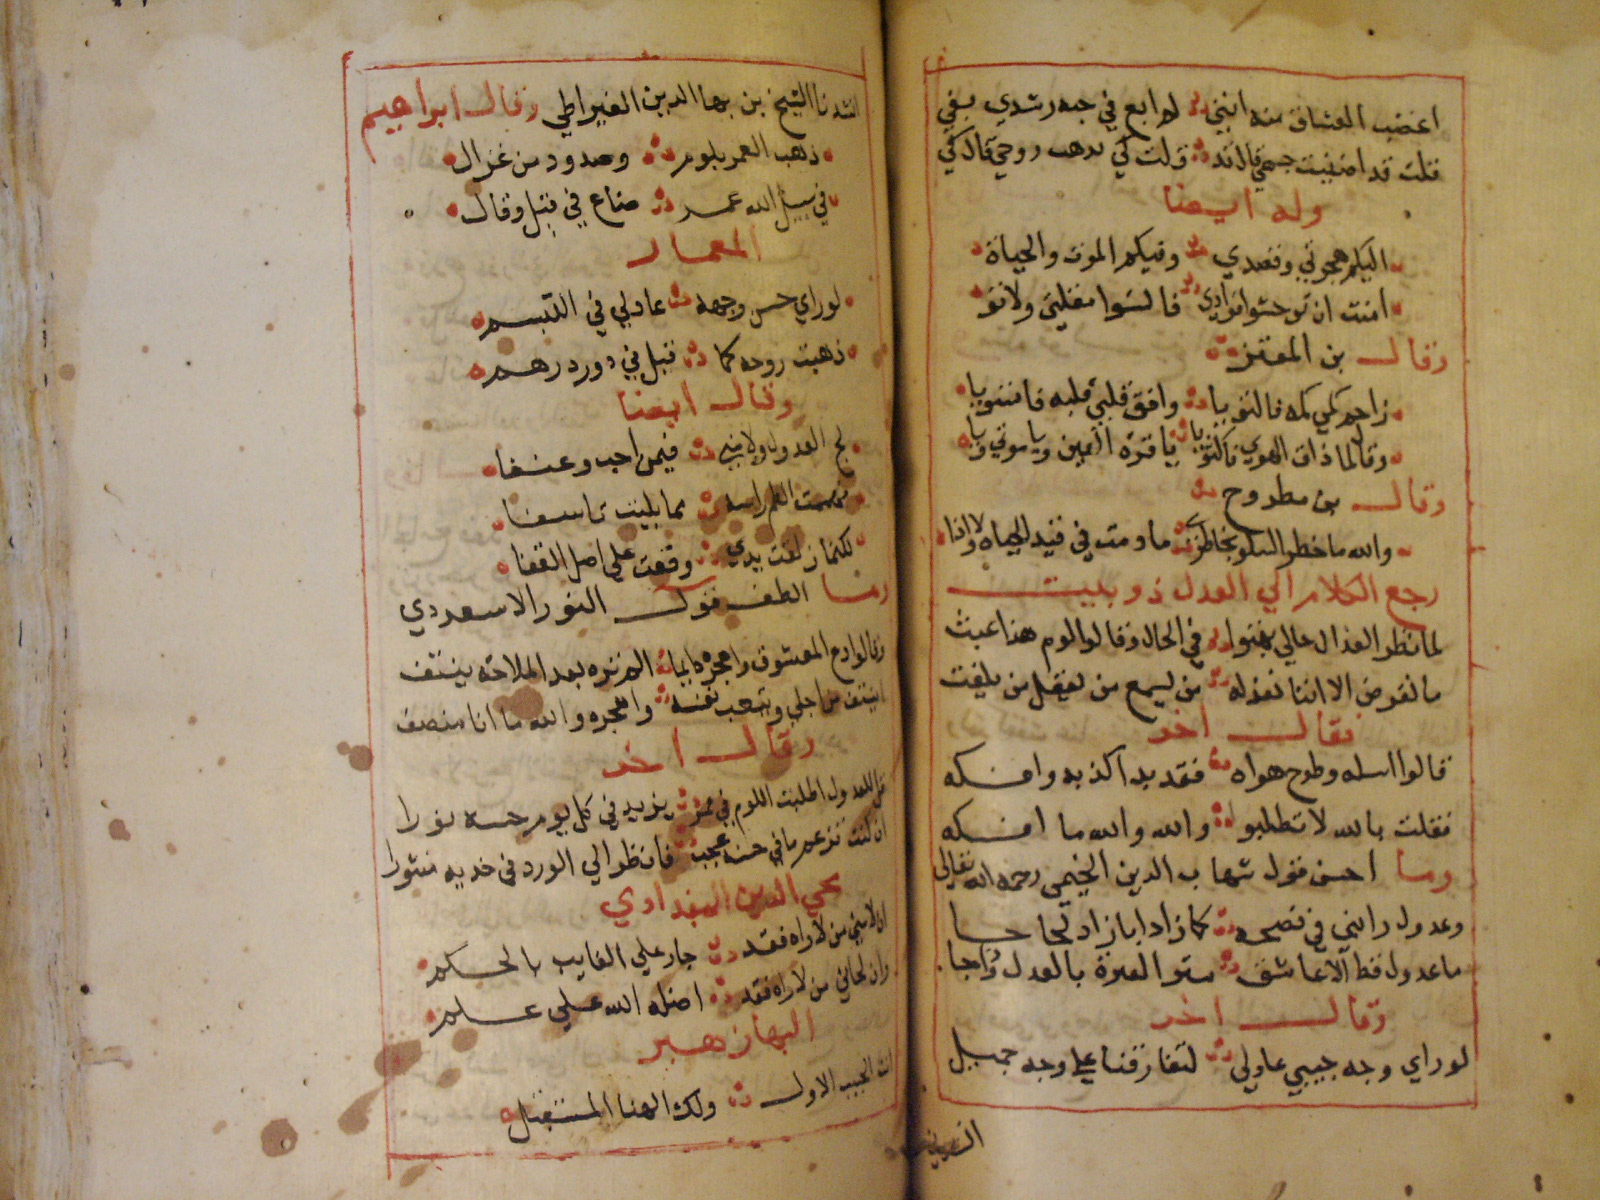 اغضب العشاق منه انني لم ابع في حبه رشدي بغي
قلت قد اضنيت جسمي قال قد قلت كي تذهب روحي قال كي
وله ايضا
اليكم هجرتي وقصدي وفيكم الموت والحياة
امنت ان توحشوا فوادي فانسوا مقلتي ولاتو
وقال بن المعتز
زاحم كمي كمه فالتويا وافق قلبي قلبه فاستويا
وطالما ذاق الهوي فاكتويا يا قرة العين ويا سوتي ويا
وقال بن مطروح
والله ما خطر السلو بخاطري ما دمت في قيد الحياه ولا اذا
رجع الكلام الي العدل ذو بليت
لما نظر العذال حالي بهتوا في الحال وقالوا لوم هذا عبث
ما نعوض الا اننا نعذله من يسمع من يعقل من يلفت
وقال اخر
قالوا اسله وطرح هواه فقد بدا كذبه وافكه
فقلت بالله لا تطلبوا والله والله ما افكه
وما احسن قول شهاب الدين الخيمي رحمه الله تعالي
وعدول رابني في نصحه كلما زاد ابا زاد لجاجا
ما عدول قط الا عاشق ستر الغيرة بالعدل وداجا
وقال اخر
لوراي وجه حبيبي عاذلي لتفارقنا علي وجه جميل
انشدنا الشيخ بن بها الدين القيراطي وقال ابراهيم
ذهب العمر بلوم وصدود من غزال
في سبيل الله عمر ضاع في قيل وقال
المعمار
لوراي حسن وجهه عادلي في التبسم
ذهبت روحه كما قيل في دور درهم
وقال ايضا
لج العدول ولامني فيمن احب وعنفا
فهممت الطم راسه مما بليت تاسفا
لكنما زلقت يدي وقعت علي اصل القفا
وما الطف قول النور الاسعردي
وقالوا دع المعشوق واهجره دايما الم تره بعد الملاحة ينتف
اينتف من اجلي ويتعب نفسه واهجره والله ما انا منصف
وقال اخر
قل للعدول اطلت اللوم في قمر يزيد في كل يوم حسنه نورا
ان كنت تزعم ما في حسنه عجب فانظر الي الورد في خديه منثورا
محي الدين البغدادي
ان لامني من لا راه فقد جار علي الغايب بالحكم
وان لحاني من لا راه فقد اضله الله علي علم
البها زهير
انت الحبيب الاول ولك الهنا المستقبل